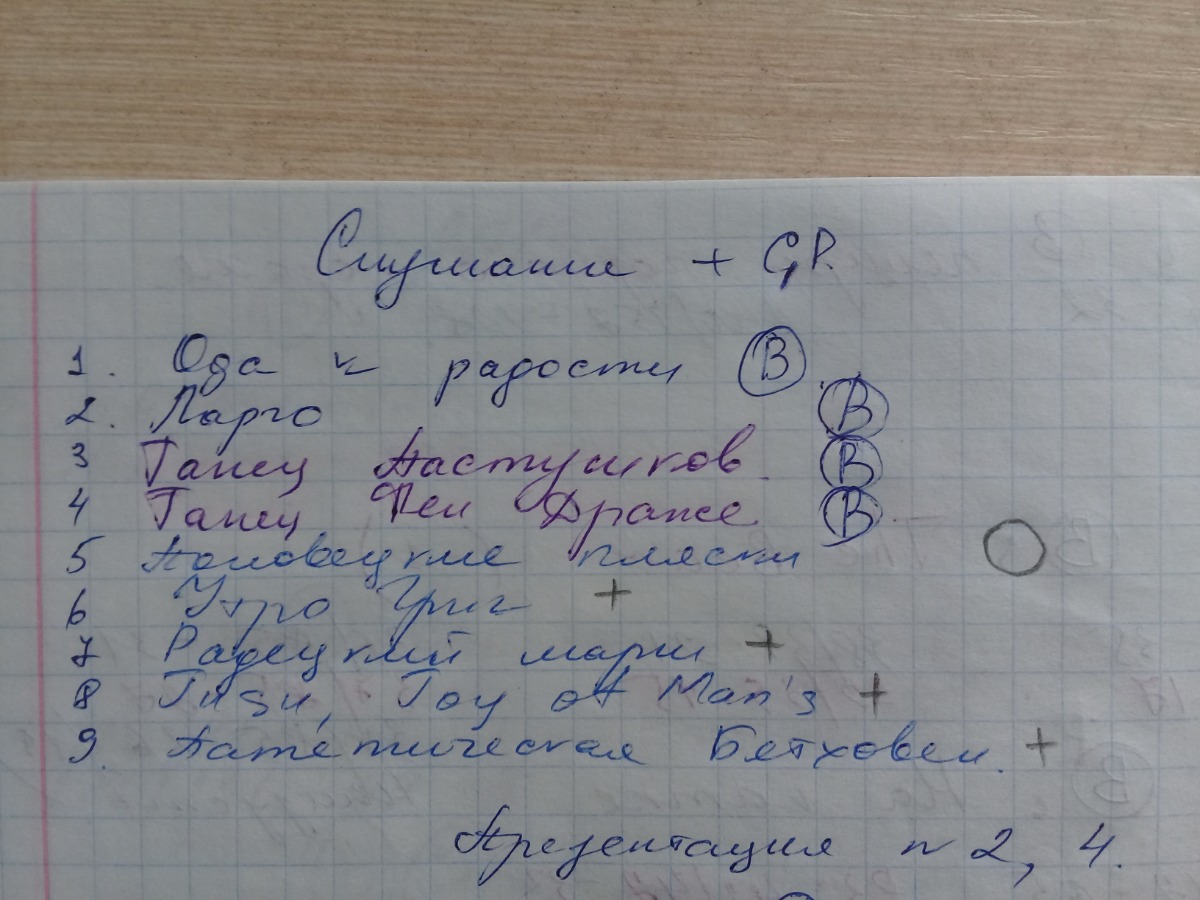 Слушание + GP.
1. Ода к радости В
2. Ларго В
3 Танец Пастушков В
4 Танец Феи Драже В
5 Половецкие пляски
6 Утро Григ +
7 Радецкий марш +
8 Joy of Man's +
9. Патетическая Бетховен. +
Презентация n 2, 4.